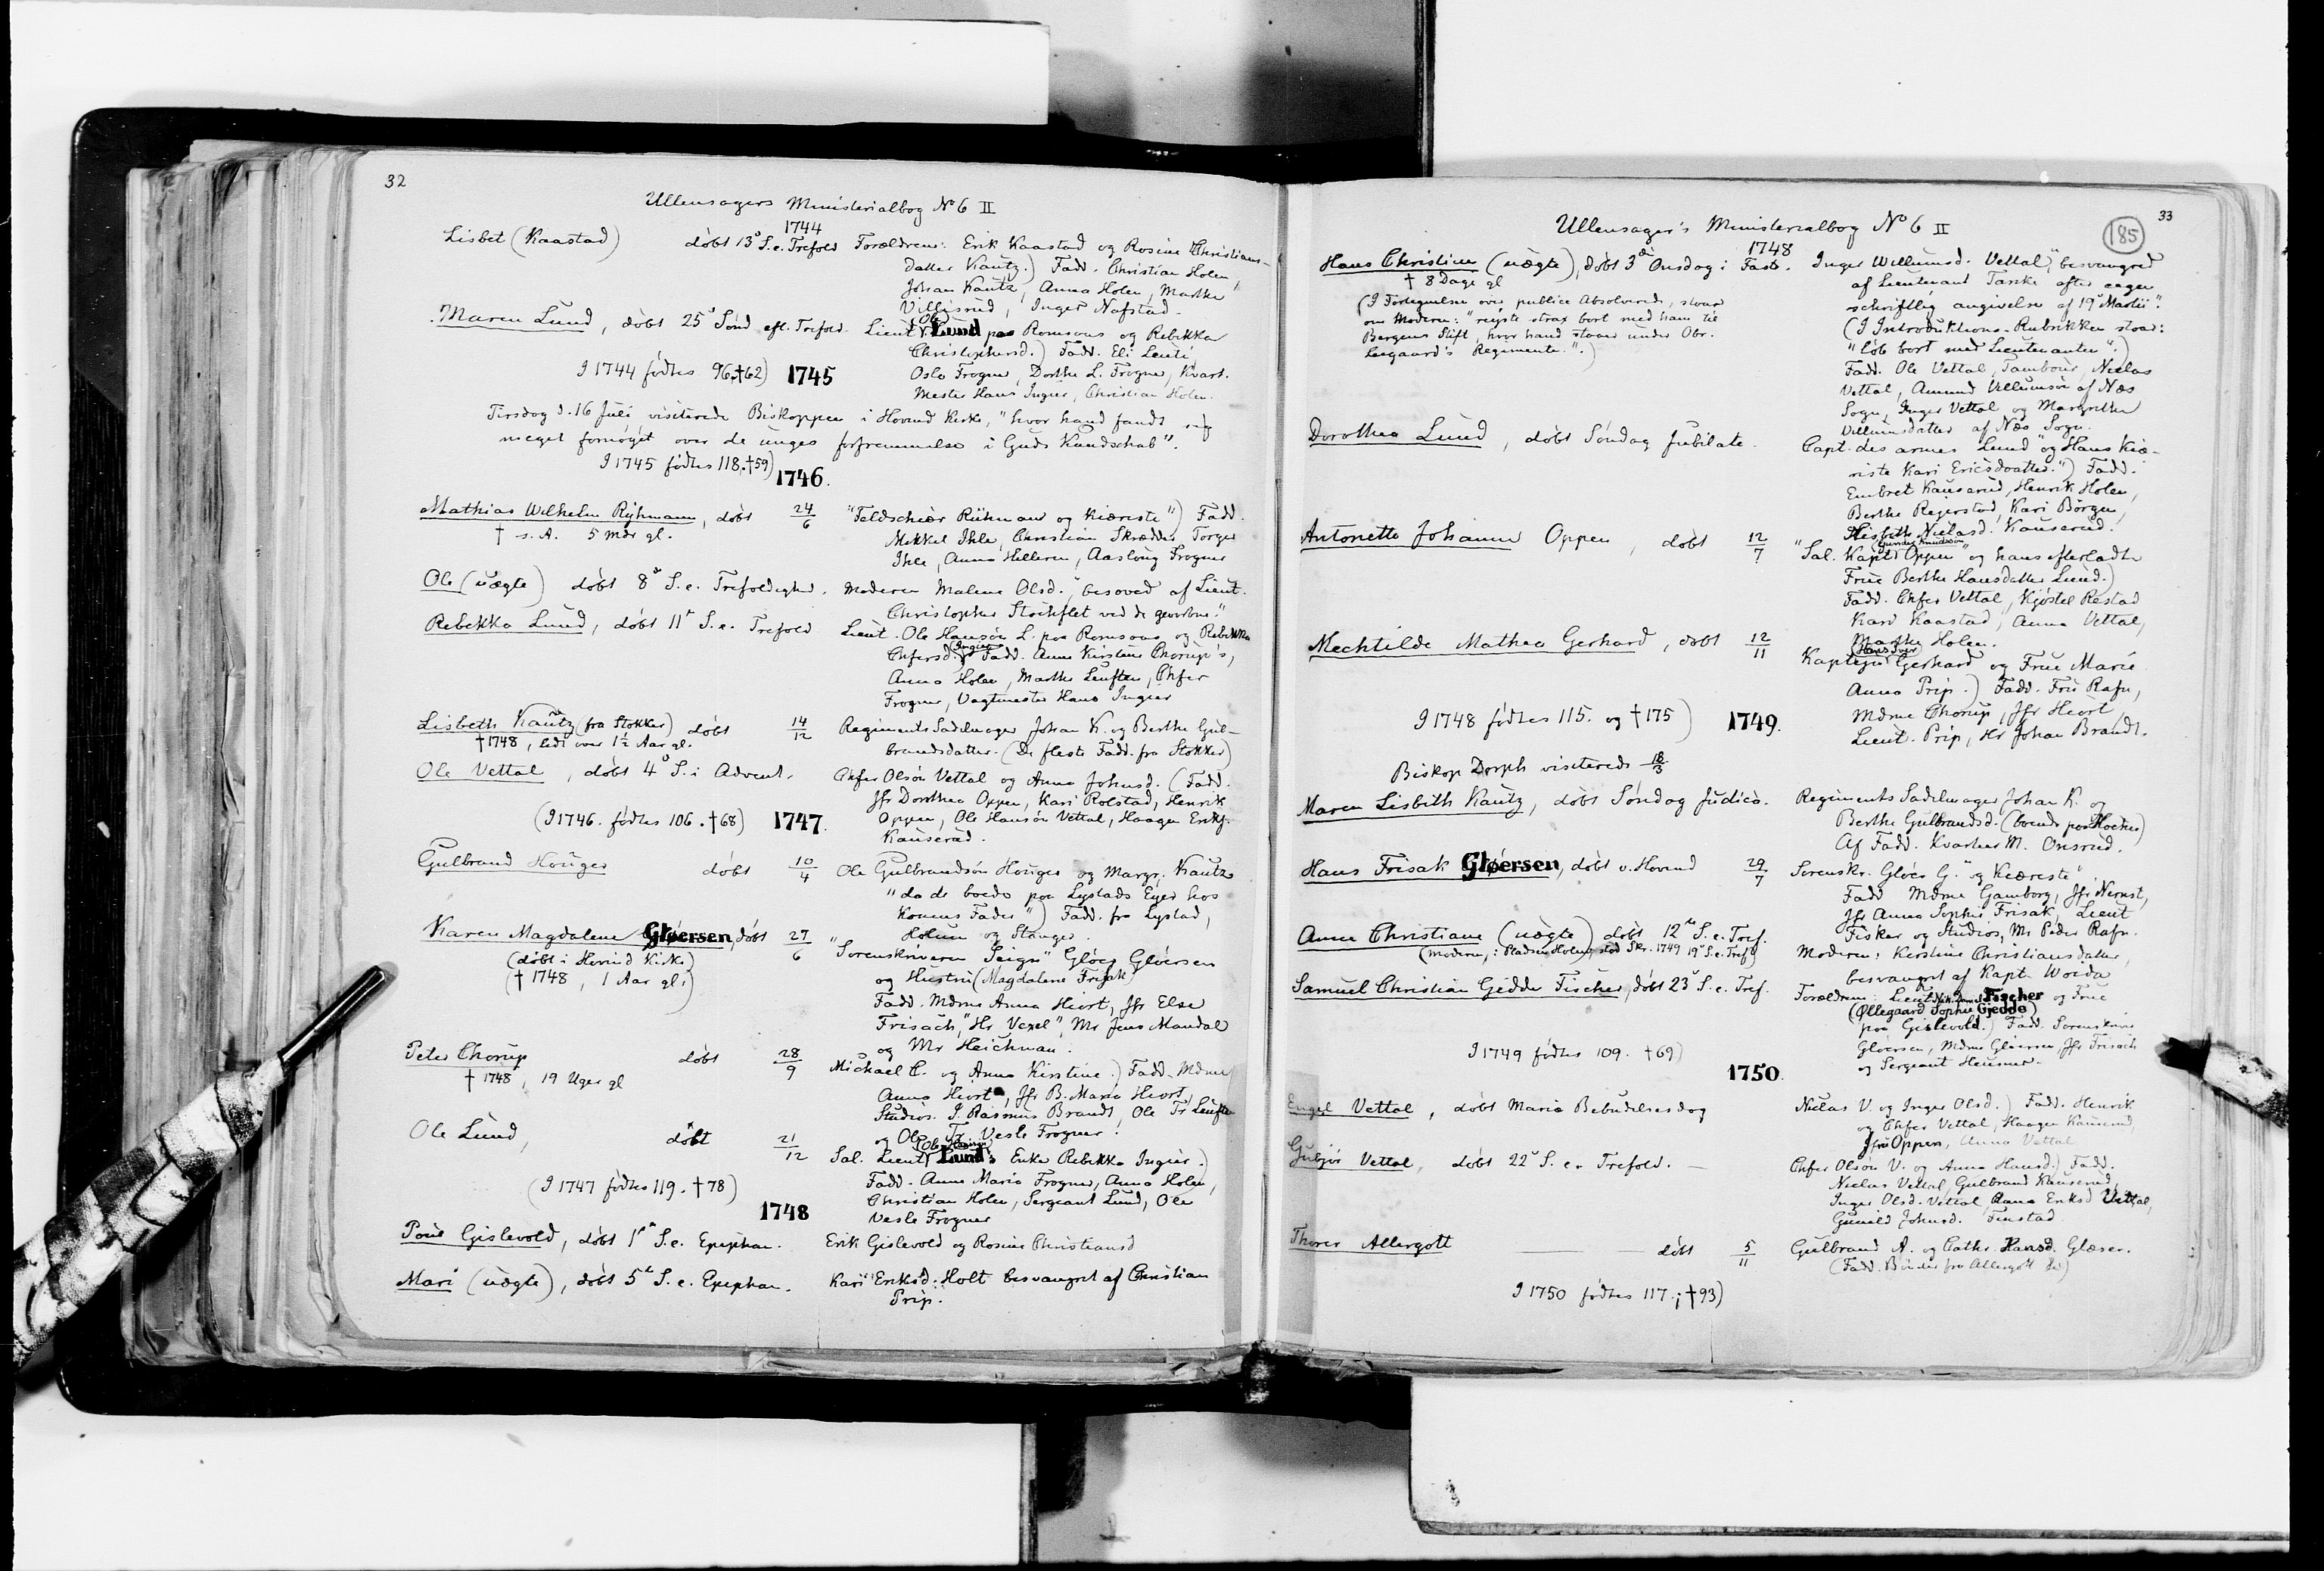 32
Ullensagers Ministerialbog No 6 II
1744
Lisbet (Kaastad) døbt 13de S. e. Trefold Forældrene: Erik Kaastad og Rosine Christians-
datter Kautz.) Fadd. Christian Holen
Johan Kautz, Anna Holen, Marthe
Villisrud, Inger Nafstad.
Maren Lund, døbt 25de Sønd eft. Trefold. Lieut (Ole) Lund paa Romsaas og Rebekka
Christophersd.) Fadd. Eli
I 1744 fødtes 96. †62) 1745 Oslo Frogner, Dorthe L. Frogner, Kvart.
Mester Hans Ingier, Christian Holen.
Tirsdag d. 16 Juli visiterede Biskoppen i Hovind Kirke, "hvor hand fandt sig
meget fornøyet over de unges forfremmelse i Guds Kundschab".
I 1745 fødtes 118. †59)
1746.
Mathias Wilhelm Rühmann, døbt 24/6 "Feldschiær Rühmann og Kiæreste") Fadd.
† s. A. 5 Mdr gl. Mikkel Ihle, Christian Skrædder Torger
Ihle, Anna Hilleren, Aaslaug Frogner
Ole (uægte) døbt 8de S. e. Trefoldighed. Moderen Malene Olsd., "besoved af Lieut.
Christopher Stockflet ved de gevorbne."
Rebekka Lund, døbt 11te S. e. Trefold Lieut. Ole Hansøn L. paa Romsaas og Rebekka
Chfersd. (Ingier) Fadd. Anne Kirstine Chorup's,
Anna Holen, Marthe Leuften, Chfer
Frogner, Vagtmester Hans Ingier
Lisbeth Kautz (fra Stokker) døbt 14/12 Regiments Sadelmager Johan K. og Berthe Gul-
† 1748, lidt over 1½ Aar gl. brandsdatter. (De fleste Fadd. fra Stokker)
Ole Vettal, døbt 4de S. i Advent. Chfer Olsøn Vettal og Anna Johnsd. (Fadd.
Jfr Dorothea Oppen, Kari Rolstad, Henrik
(I 1746. fødtes 106. †68) 1747. Oppen, Ole Hansøn Vettal, Haagen Eriks.
Kauserud.
Gulbrand Houger døbt 10/4 Ole Gulbrandsøn Houger og Margr. Kautz
"da de boede paa Lystads Eyer hos
Konens Fader") Fadd. fra Lystad,
Holum og Stanger.
Karen Magdalene Gløersen, døbt 27/6 "Sorenskriveren Seigr" Gløer Gløersen
(døbt i Hovind Kirke) og Hustru (Magdalene Frisak)
(† 1748, 1 Aar gl.) Fadd. Mdme Anna Hiort, Jfr Else
Frisach, "Hr Vexel", Mr Jens Mandal
og Mr Heichman.
Peter Chorup døbt 28/9 Michael C. og Anna Kirstine.) Fadd. Mdme
† 1748, 19 Uger gl Anna Hiort, Jfr B. Maria Hiort,
Studios. J. Rasmus Brandt, Ole Tr. Leuften
og Ole Tr. Vesle Frogner.
Ole Lund, døbt 21/12 Sal. Lieut (Ole Hansøn) Lund's Enke Rebekka Ingier.)
Fadd. Anne Maria Frogner, Anna Holen,
(I 1747 fødtes 119. †78) Christian Holen, Sergeant Lund, Ole
1748 Vesle Frogner
Poul Gislevold, døbt 1ste S. e. Epiphan. Erik Gislevold og Rosine Christiansd
Mari (uægte), døbt 5te S. e. Epiphan. Kari Eriksd: Holt besvangret af Christian
Prip.
33
185
Ullensager's Ministerialbog No 6 II
1748
Hans Christian (uægte), døbt 3die Onsdag i Faste. Inger Willumsd. Vettal, "besvangred
† 8 Dage gl af Lieutenant Tanke efter eegen
(I Fortegnelsen over publice Absolverede, staar schriftlig angivelse af 19de Martii".
om Moderen: "reiste strax bort med ham til (I Introduktions-Rubrikken staar:
Bergens Stift, hvor hand staaer under Obr. "løb bort med Lieutenanten".)
Regimente.".) Fadd. Ole Vettal, Tambour, Niclas
Vettal, Amund Villumsøn af Næs
Sogn, Inger Vettal og Margrethe
Villumsdatter af Næs Sogn.
Dorothea Lund, døbt Søndag Jubilate. Capt. des armes Lund "og Hans Kiæ-
riste Kari Ericsdaatter.") Fadd.
Embret Kauserud, Henrik Holen,
Berthe Regerstad, Kari Börgen,
Lisbeth Niclasd. Kauserud.
Antonette Johanne Oppen, døbt 12/7 "Sal. Kapt (Gunder Knudssøn) Oppen" og hans efterladte
Frue Berthe Hansdatter Lund.)
Fadd. Chfer Vettal, Kjøstel Restad
Kari Kaastad, Anna Vettal,
Marthe Holen.
Mechtilde Mathea Gerhard, døbt 12/11 Kaptejn (Hans Iver) Gerhard og Frue Marie
Anna Prip.) Fadd. Fru Rafn,
I 1748 fødtes 115. og †175) 1749. Mdme Chorup, Jfr Hiort,
Lieut. Prip, Hr Johan Brandt.
Biskop Dorph visiterede 18/3
Maren Lisbeth Kautz, døbt Søndag Judica. Regiments Sadelmager Johan K. og
Berthe Gulbrandsd. (boende paa Stocker)
Af Fadd. Kvarteer M. Onsrud.
Hans Frisak Gløersen, døbt v. Hovind 29/7 Sorenskr. Gløer G." og Kiæreste".
Fadd Mdme Gamborg, Jfr Nernst,
Jfr Anna Sophie Frisak, Lieut
Fisker og Studios, Mr Peder Rafn.
Anne Christiane (uægte) døbt 12te S. e. Tref. Moderen: Kirstine Christiansdatter,
(Moderen, : Pladsen Holm, stod Skr. 1749 19de S. e. Tref) besvangret af Kapt. Woida
Samuel Christian Gedde Fischer, døbt 23de S. e. Tref. Forældrene: Lieut Fischer og Frue
(Øllegaard Sophie Gjedde)
paa Gislevold.) Fadd. Sorenskriver
I 1749 fødtes 109. †69) Gløersen, Mdme Gløersen, Jfr Frisach
og Sergeant Heusner.
1750.
Engel Vettal, døbt Mariæ Bebudelsesdag Niclas V. og Inger Olsd.) Fadd. Henrik
og Chfer Vettal, Haagen Kauserud,
Jfru Oppen, Anna Vettal
Gubjør Vettal, døbt 22de S. e. Trefold. — Chfer Olsøn V. og Anna Hansd.) Fadd.
Niclas Vettal, Gulbrand Kauserud,
Inger Olsd. Vettal, Anna Eriksd Vettal,
Gunild Johnsd. Finstad
Thorer Allergott — døbt 5/11 Gulbrand A. og Cathr. Hansd. Glæser.
(Fadd. Bønder fra Allergott &c)
I 1750 fødtes 117.; †93)